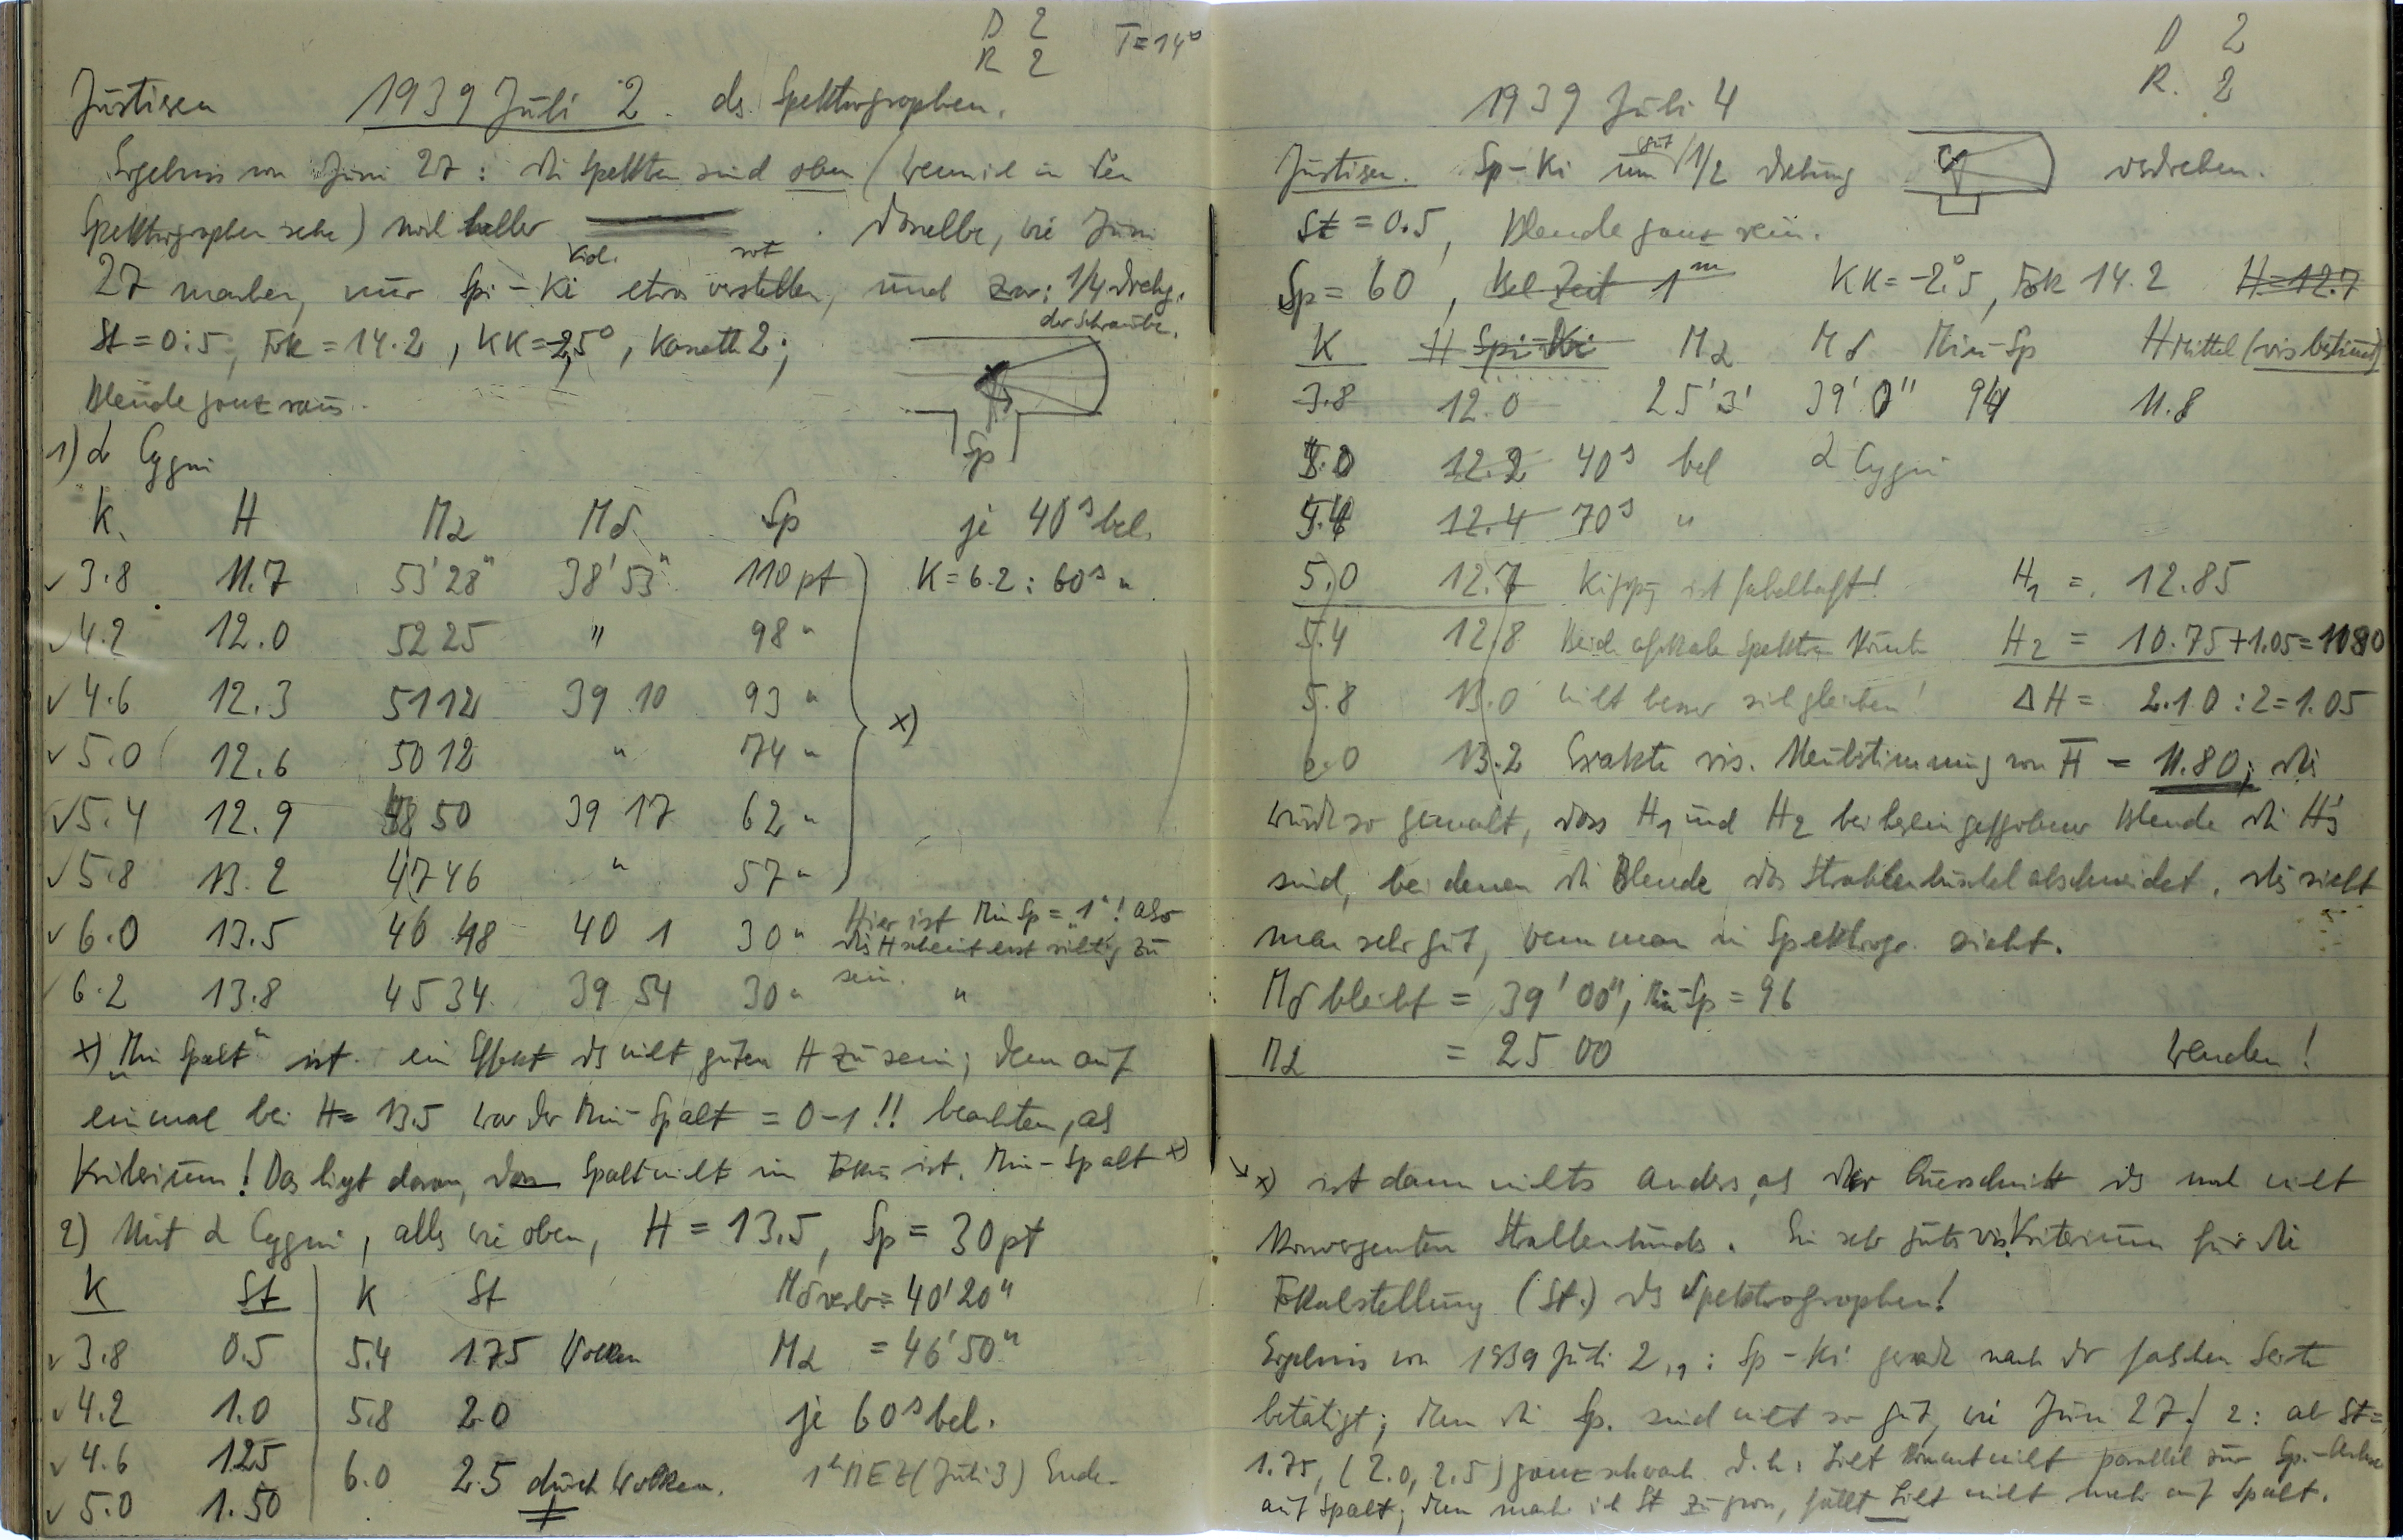 D 2
R 2
T=14°
Justieren 1939 Juli 2. des Spektrographen.
Ergebnis von Juni 27: die Spektren sind oben (wenn ich in den
Spektrographen sehe) noch heller. Dasselbe, wie Juni
viol. rot
27 machen, nur Sp-Ki etwas verstellen, und zwar: 1/4 Drehg.
der Schraube.
St = 0.5, Fok = 14.2, KK = -2,5°, Kassette 2;
Blende ganz raus.
Sp
1) α Cygni
K. H Mα Mδ Sp je 40s bel.
✓ 3.8 11.7 53'28" 38'53" 110 pt K = 6.2 : 60s "
✓ 4.2 12.0 52 25 " 98 "
✓ 4.6 12.3 51 12 39 10 93 "
x)
✓ 5.0 12.6 50 12 " 74 "
✓ 5.4 12.9 48 50 39 17 62 "
✓ 5.8 13.2 47 46 " 57 "
✓ 6.0 13.5 46 48 40 1 30 " Hier ist Min Sp = "1"! also
dies H scheint erst richtig zu
sein.
6.2 13.8 45 34 39 54 30 " "
x) "Min Spalt" ist ein Effekt des nicht guten H zu sein; denn auf
einmal bei H = 13.5 war der Min-Spalt = 0-1!! beachten, als
Kriterium! Das liegt daran, dass Spalt nicht im Fokus ist. Min-Spalt x)
2) Mit α Cygni, alles wie oben, H = 13.5, Sp = 30 pt
K St K St Mδ verb = 40'20"
✓ 3.8 0.5 5.4 1.75 Wolken Mα = 46'50"
✓ 4.2 1.0 5.8 2.0 je 60s bel.
✓ 4.6 1.25 6.0 2.5 durch Wolken. 1h MEZ (Juli 3) Ende
✓ 5.0 1.50
D 2
R. 2
1939 Juli 4
Justieren. Sp-Ki um gut 1/2 Drehung verdrehen.
St = 0.5, Blende ganz rein.
Sp = 60, Bel Zeit 1m KK = -2.°5, Fok 14.2 H = 12.7
K H Spi-Ki Mα Mδ Min-Sp H Mittel (vis bestimmt)
3.8 12.0 25'3' 39'0" 94 11.8
5.0 12.2 40s bel α Cygni
5.4 12.4 70s "
5.0 12.7 Kippg ist fabelhaft! H1 = 12.85
5.4 12.8 Beide Spektren könnten H2 = 10.75 + 1.05 = 11.80
5.8 13.0 nicht besser sich gleichen! ΔH = 2.10 : 2 = 1.05
6.0 13.2 Exakte vis. Neubestimmung von H̅ = 11.80; dies
wurde so gemacht, dass H1 und H2 bei hereingeschobener Blende die H's
sind, bei denen die Blende das Strahlenbüschel abschneidet. dies sieht
man sehr gut, wenn man in Spektrogr. sieht.
Mδ bleibt = 39'00", Min-Sp = 96
Mα = 25 00 Wenden!
→ x) ist dann nichts anders, als der Querschnitt des noch nicht
konvergenten Strahlenbündels. Ein sehr gutes vis. Kriterium für die
Fokalstellung (St.) des Spektrographen!
Ergebnis von 1939 Juli 2, 1: Sp-Ki gerade nach der falschen Seite
betätigt; denn die Sp. sind nicht so gut, wie Juni 27! 2: ab St =
1.75, (2.0, 2.5) ganz schwach d.h.: Licht kommt nicht parallel zur Sp.-Achse
auf Spalt; denn mache ich St zu gross, fällt Licht nicht mehr auf Spalt.